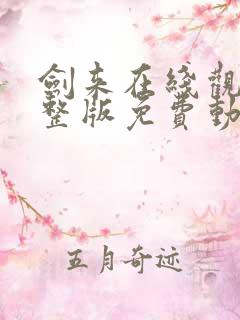 劍来在线觀
整版免費動
五月奇迹